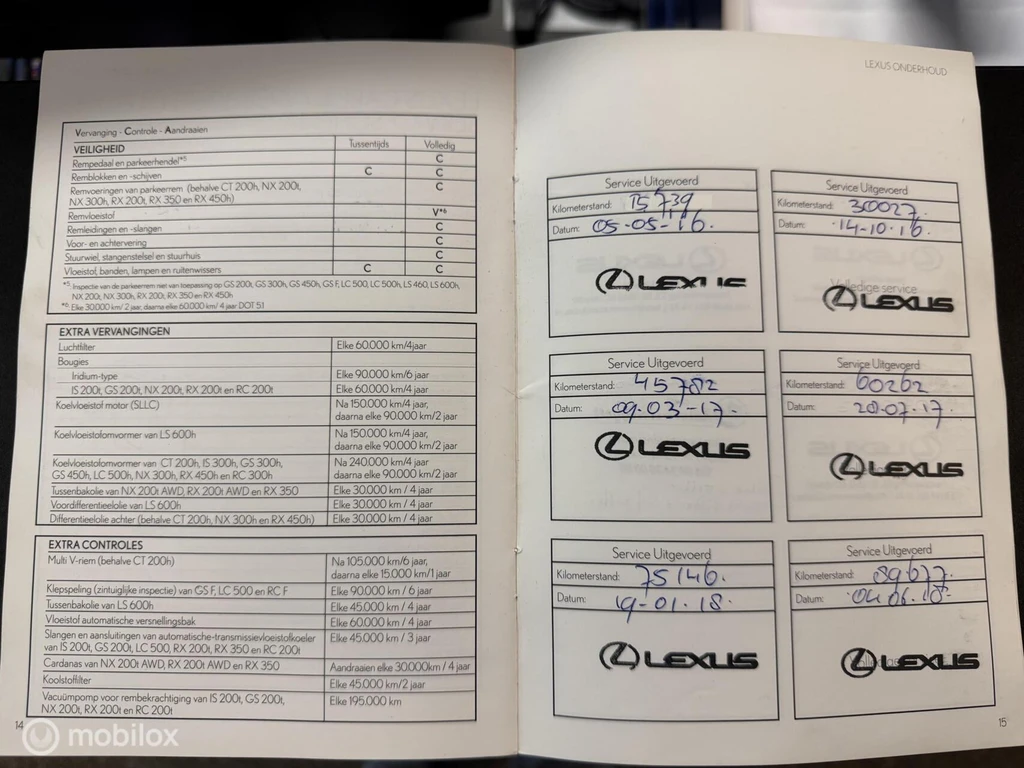 Vervanging - Controle - Aandraaien
VEILIGHEID Tussentijds Volledig
Rempedaal en parkeerhendel*5 C
Remblokken en -schijven C C
Remvoeringen van parkeerrem (behalve CT 200h, NX 200t, C
NX 300h, RX 200t, RX 350 en RX 450h)
Remvloeistof V*6
Remleidingen en -slangen C
Voor- en achtervering C
Stuurwiel, stangenstelsel en stuurhuis C
Vloeistof, banden, lampen en ruitenwissers C C
*5: Inspectie van de parkeerrem niet van toepassing op GS 200t, GS 300h, GS 450h, GS F, LC 500, LC 500h, LS 460, LS 600h,
NX 200t, NX 300h, RX 200t, RX 350 en RX 450h
*6: Elke 30.000 km/ 2 jaar, daarna elke 60.000 km/ 4 jaar DOT 5.1
EXTRA VERVANGINGEN
Luchtfilter Elke 60.000 km/4jaar
Bougies
Iridium-type Elke 90.000 km/6 jaar
IS 200t, GS 200t, NX 200t, RX 200t en RC 200t Elke 60.000 km/4 jaar
Koelvloeistof motor (SLLC) Na 150.000 km/4 jaar,
daarna elke 90.000 km/2 jaar
Koelvloeistofomvormer van LS 600h Na 150.000 km/4 jaar,
daarna elke 90.000 km/2 jaar
Koelvloeistofomvormer van CT 200h, IS 300h, GS 300h, Na 240.000 km/4 jaar
GS 450h, LC 500h, NX 300h, RX 450h en RC 300h daarna elke 90.000 km/2 jaar
Tussenbakolie van NX 200t AWD, RX 200t AWD en RX 350 Elke 30.000 km / 4 jaar
Voordifferentieelolie van LS 600h Elke 30.000 km / 4 jaar
Differentieelolie achter (behalve CT 200h, NX 300h en RX 450h) Elke 30.000 km / 4 jaar
EXTRA CONTROLES
Multi V-riem (behalve CT 200h) Na 105.000 km/6 jaar,
daarna elke 15.000 km/1 jaar
Klepspeling (zintuiglijke inspectie) van GS F, LC 500 en RC F Elke 90.000 km / 6 jaar
Tussenbakolie van LS 600h Elke 45.000 km / 4 jaar
Vloeistof automatische versnellingsbak Elke 60.000 km / 4 jaar
Slangen en aansluitingen van automatische-transmissievloeistofkoeler Elke 45.000 km / 3 jaar
van IS 200t, GS 200t, LC 500, RX 200t, RX 350 en RC 200t
Cardanas van NX 200t AWD, RX 200t AWD en RX 350 Aandraaien elke 30.000km / 4 jaar
Koolstoffilter Elke 45.000 km/2 jaar
Vacuümpomp voor rembekrachtiging van IS 200t, GS 200t, Elke 195.000 km
NX 200t, RX 200t en RC 200t
14
mobilox
LEXUS ONDERHOUD
Service Uitgevoerd
Kilometerstand: 15739
Datum: 05-05-16.
LEXUS
Service Uitgevoerd
Kilometerstand: 30027.
Datum: 14-10-16.
Volledige service
LEXUS
Service Uitgevoerd
Kilometerstand: 45782
Datum: 09-03-17.
LEXUS
Service Uitgevoerd
Kilometerstand: 60262
Datum: 20-07-17.
LEXUS
Service Uitgevoerd
Kilometerstand: 75146.
Datum: 19-01-18.
LEXUS
Service Uitgevoerd
Kilometerstand: 89677.
Datum: 04-06-18.
LEXUS
15